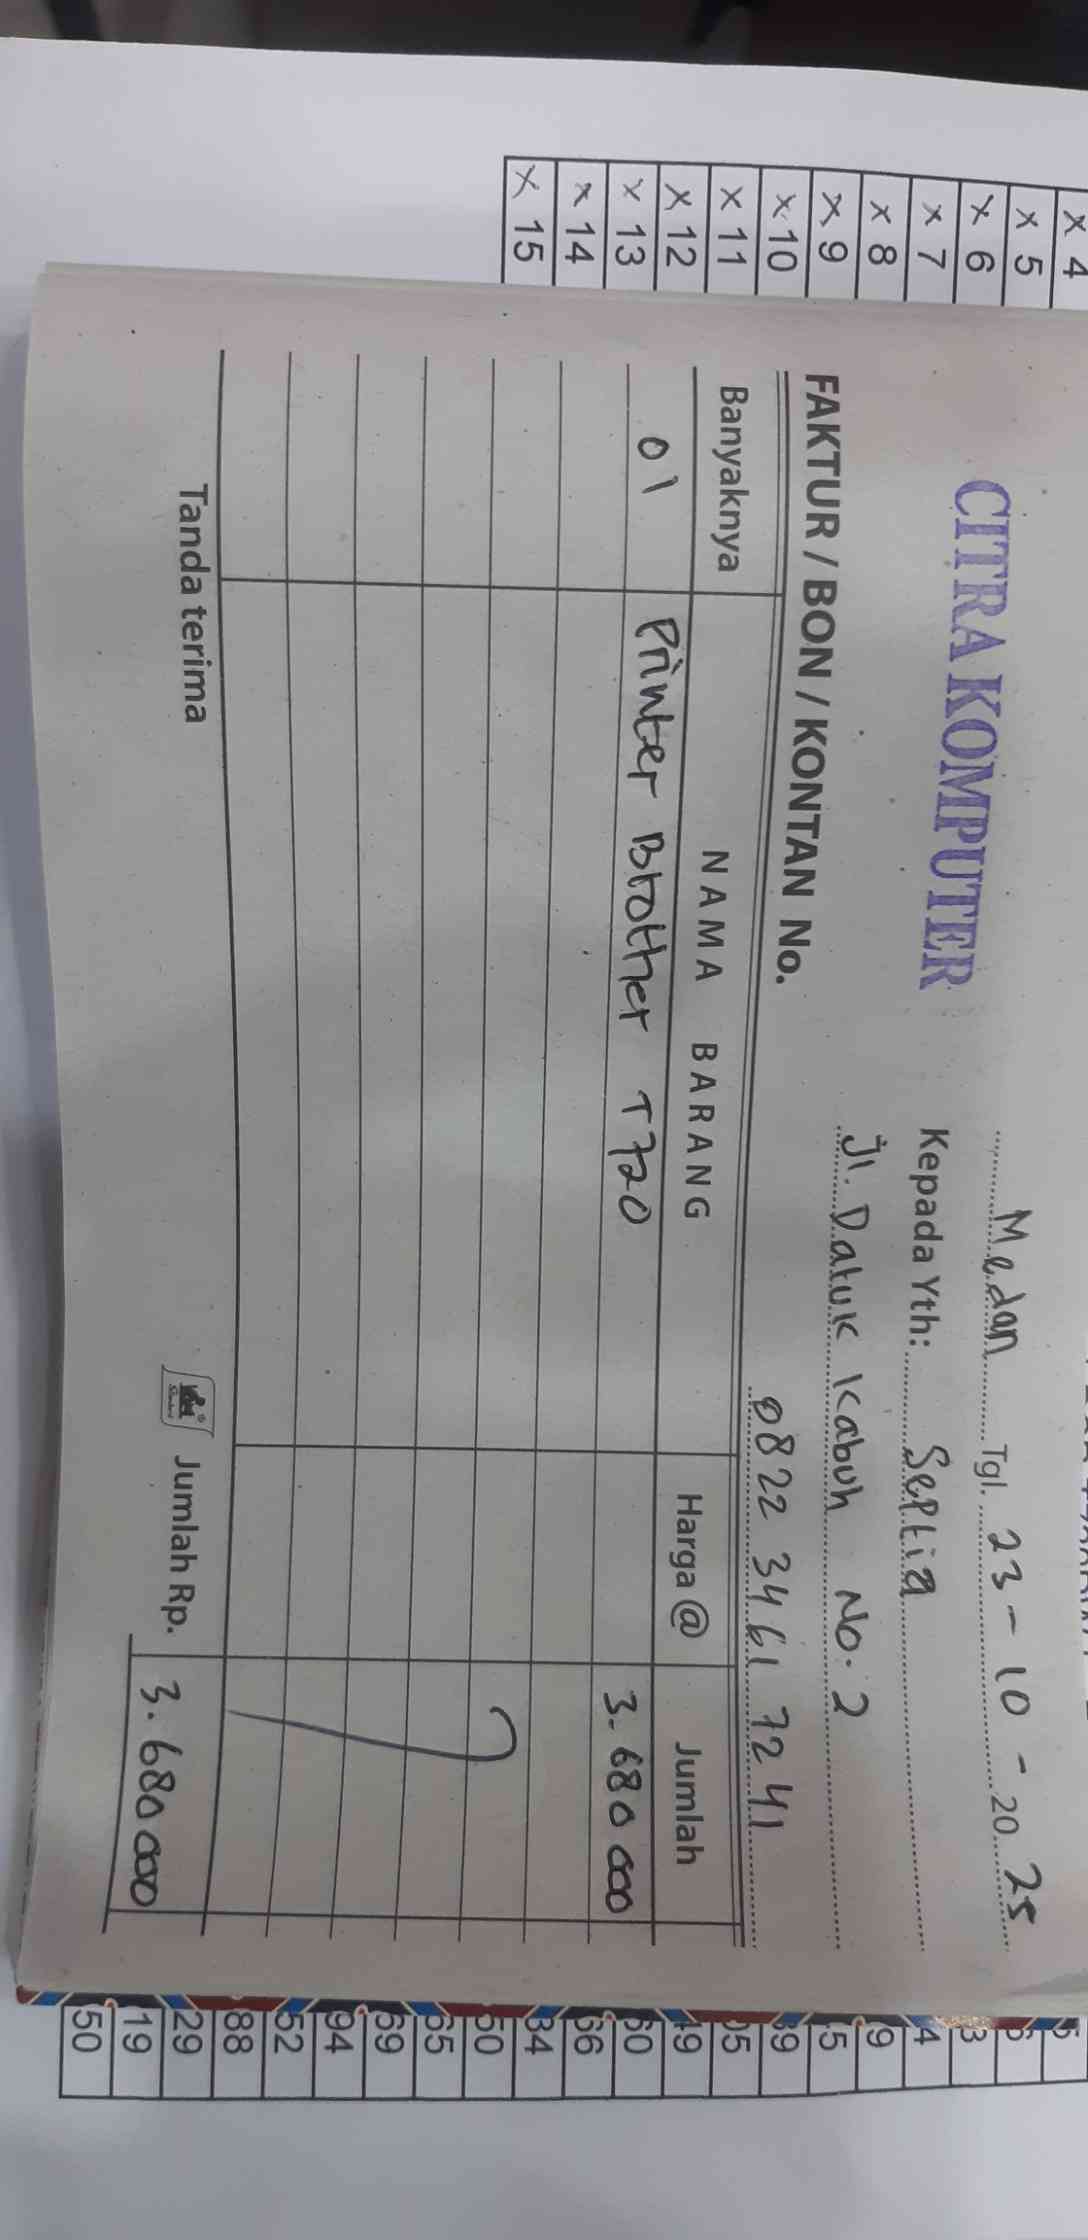 CITRA KOMPUTER
Medan Tgl. 23 - 10 - 20 25
Kepada Yth: Septia
Jl. Datuk Kabuh No. 2
0822 3461 7241
FAKTUR / BON / KONTAN No.
Banyaknya NAMA BARANG Harga @ Jumlah
01 Printer Brother T720 3.680 000
Tanda terima Jumlah Rp. 3.680 000
x 4
x 5
x 6
x 7
x 8
x 9
x 10
x 11
x 12
x 13
x 14
x 15